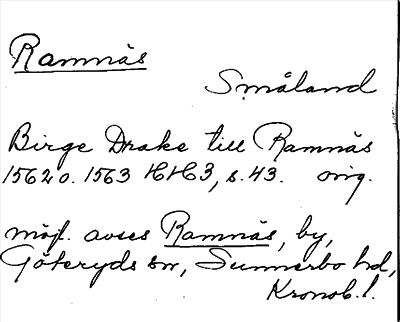 Ramnäs
Småland
Birge Drake till Ramnäs
1562 o. 1563 HH3, s. 43. orig.
möjl. avses Ramnäs, by,
Göteryds sn, Sunnerbo hd,
Kronob. l.